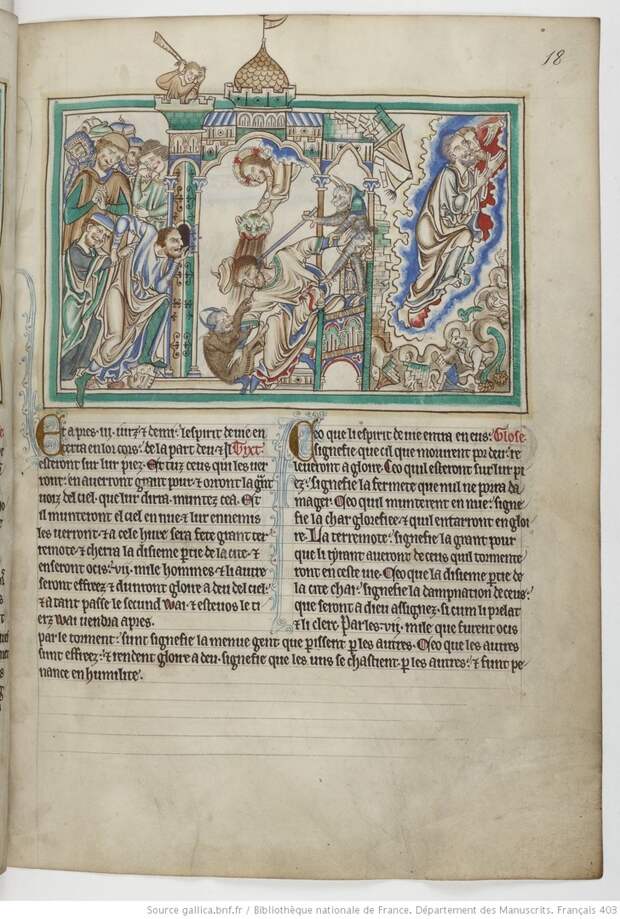 18
Et apres .iii. iurz & demi: lespirit de uie en
entra en lor cors: de la part deu & il Tixt
esteront sur lur piez. Et tuz ceus qui les ver
ront: en aueront grant pour & orront la grāt
uoiz del ciel. que lur dirra. muntez cea. Et
il munteront el ciel en nue & lur ennemis
les uerront: & a cele hure sera fete grant ter
remote. & cherra la disieme p̄tie de la cite. &
enseront ocis: vii. mile hommes & li autre
seront effreez & durront gloire a deu del ciel:
& a tant passe le secund wai. & esteuos le ti
erz wai uendra apres.
Ceo que li espirit de uie entra en eus: Glose
signefie que cil que mourent por deu: re
leueront a gloire. Ceo quil esteront sur lur pi
ez: signefie la fermete que nul ne porra da
mager. Ceo quil munterent en nue: signe
fie la char glorefiee. & quil entarront en gloi
re. La terremote: signefie la grant pour
que li tyrant aueront de ceus quil tormente
ront en ceste uie. Ceo que la disieme p̄tie de
la cite chai: signefie la dampnation de ceus:
que seront a dieu assignez. si cum li prelat
& li clerc. Par les .vii. mile que furent ocis
par le torment: sunt signefie la menue gent que pissent p̱ les autres. Ceo que les autres
sunt effreez: & rendent gloire a deu. signefie que les uns se chastient p̱ les autres: & funt pe
nance en humilite.
Source gallica.bnf.fr / Bibliothèque nationale de France. Département des Manuscrits. Français 403